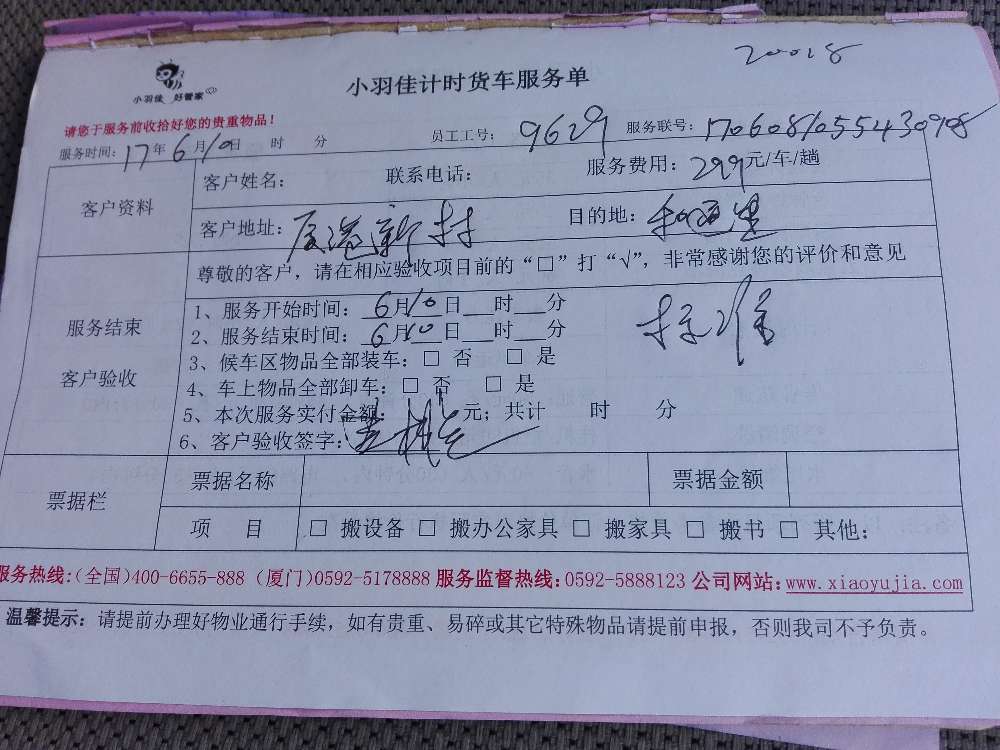 20018
小羽佳 好管家
小羽佳计时货车服务单
请您于服务前收拾好您的贵重物品！
服务时间：17年6月10日 时 分 员工工号：9629 服务联号：170608105543098
客户资料
客户姓名： 联系电话： 服务费用：299元/车/趟
客户地址： 新村 目的地：和通里
服务结束
客户验收
尊敬的客户，请在相应验收项目前的“□”打“√”，非常感谢您的评价和意见
1、服务开始时间：6月10日 时 分
2、服务结束时间：6月10日 时 分
3、候车区物品全部装车：□ 否 □ 是
4、车上物品全部卸车：□ 否 □ 是
5、本次服务实付金额： 元；共计 时 分
6、客户验收签字：
票据栏
票据名称 票据金额
项 目 □ 搬设备 □ 搬办公家具 □ 搬家具 □ 搬书 □ 其他：
服务热线：（全国）400-6655-888（厦门）0592-5178888 服务监督热线：0592-5888123 公司网站：www.xiaoyujia.com
温馨提示：请提前办理好物业通行手续，如有贵重、易碎或其它特殊物品请提前申报，否则我司不予负责。